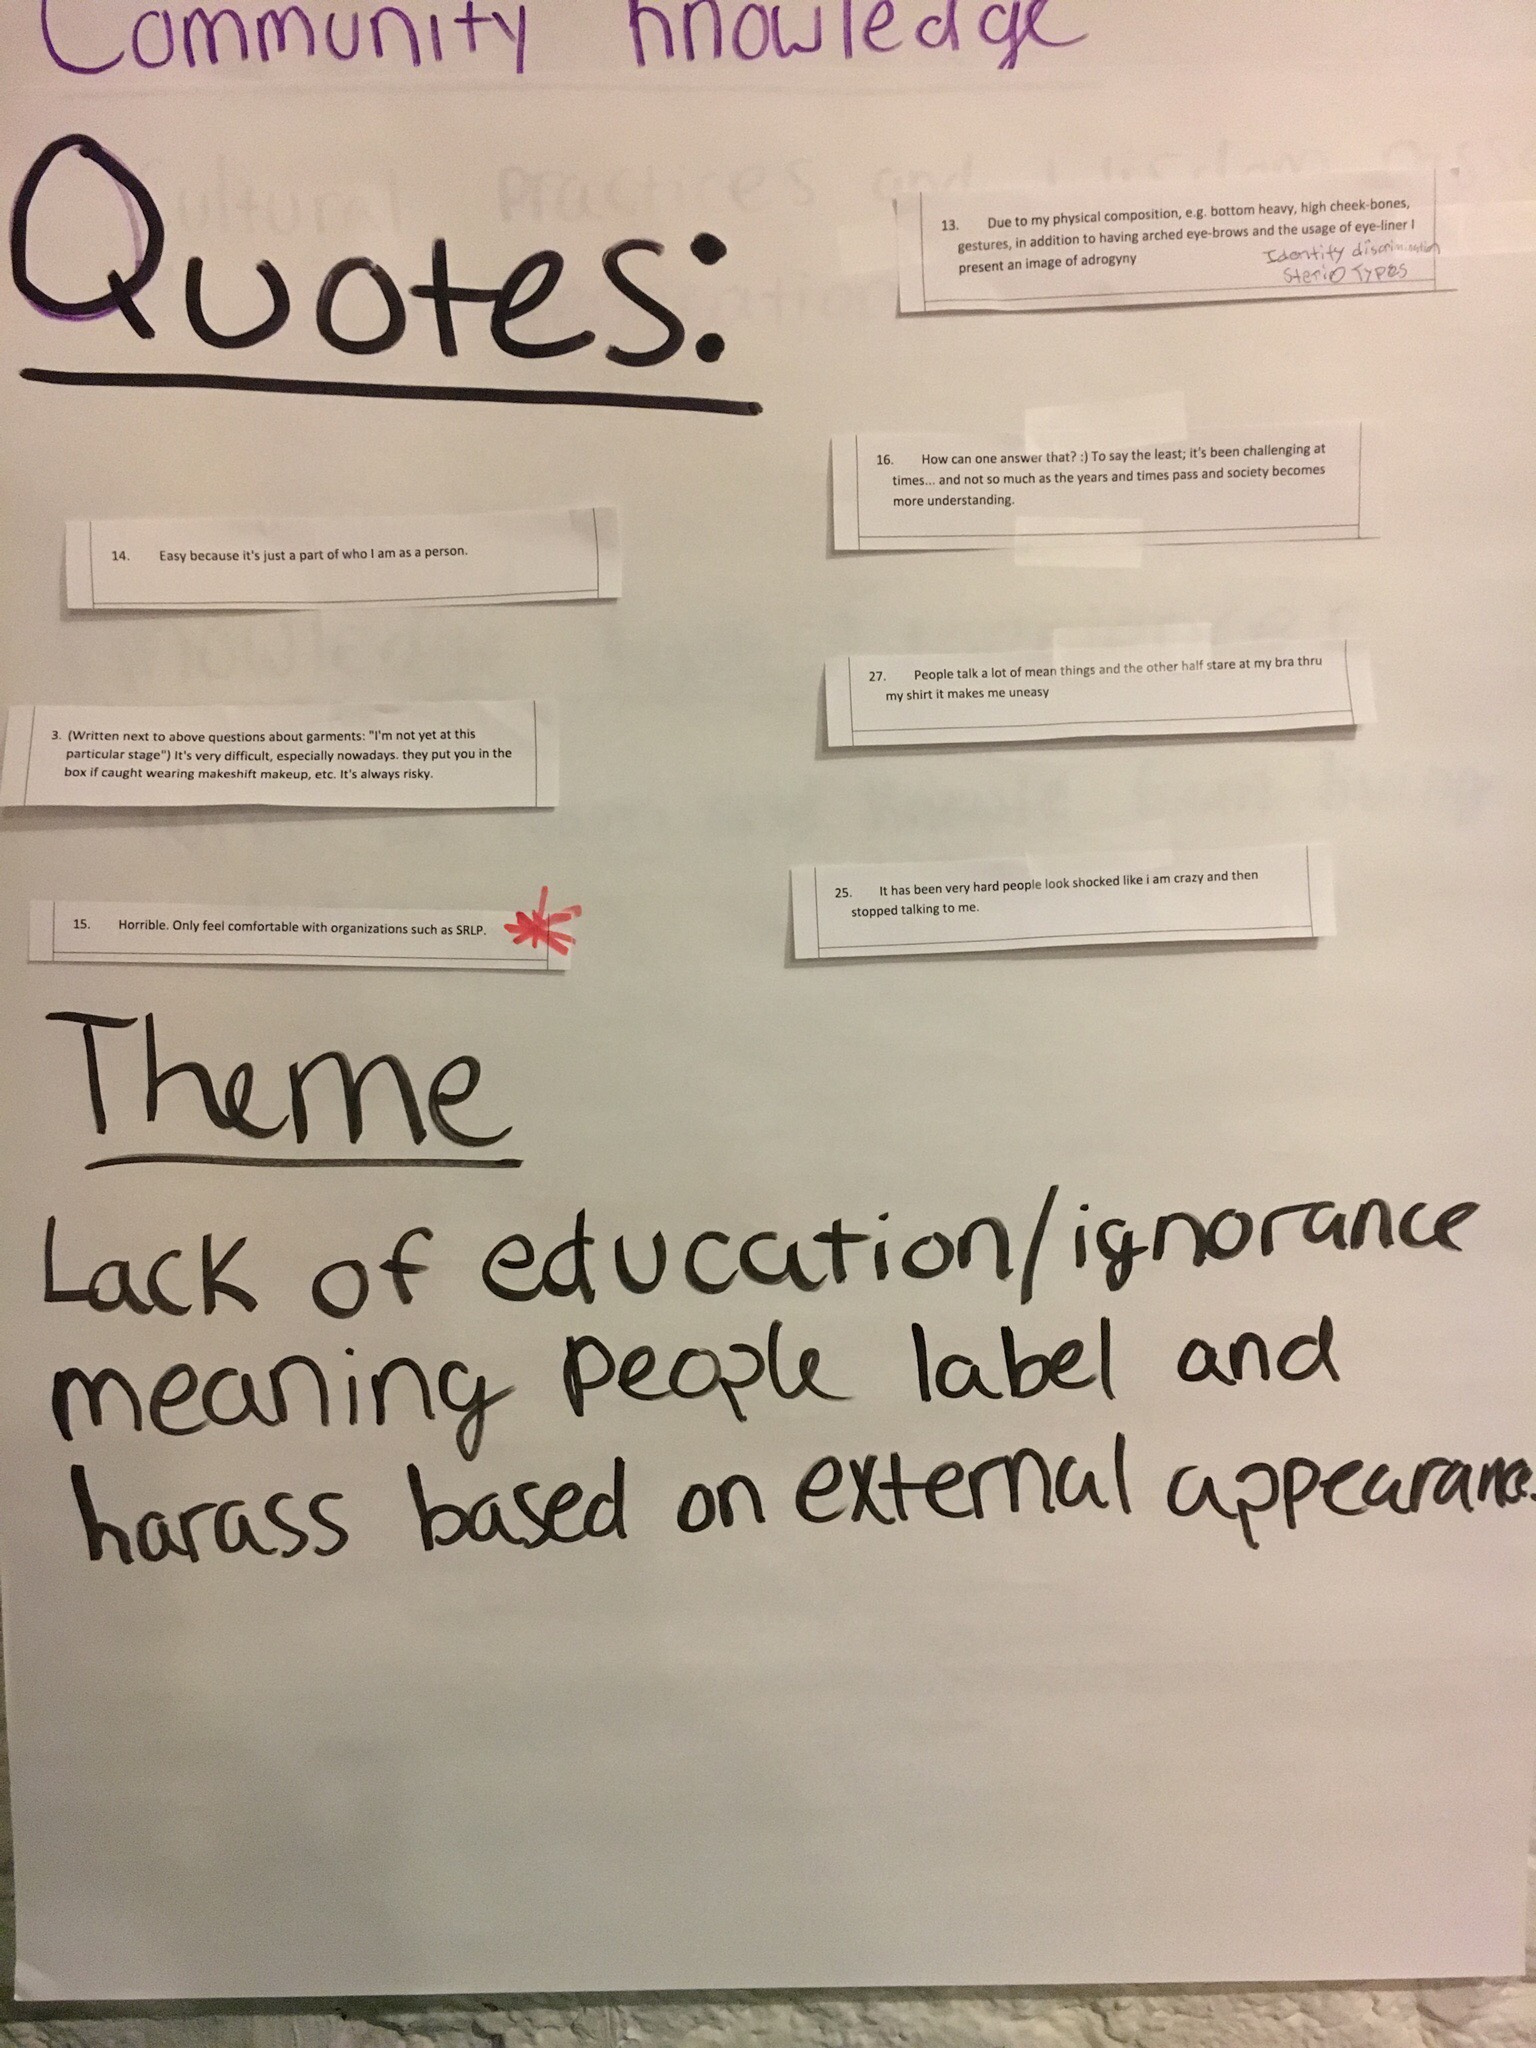 Community knowledge
Quotes:
13. Due to my physical composition, e.g. bottom heavy, high cheek-bones,
gestures, in addition to having arched eye-brows and the usage of eye-liner I
present an image of adrogyny
Identity discrimination
Sterio Types
16. How can one answer that? :) To say the least; it's been challenging at
times... and not so much as the years and times pass and society becomes
more understanding.
14. Easy because it's just a part of who I am as a person.
27. People talk a lot of mean things and the other half stare at my bra thru
my shirt it makes me uneasy
3. (Written next to above questions about garments: "I'm not yet at this
particular stage") It's very difficult, especially nowadays. they put you in the
box if caught wearing makeshift makeup, etc. It's always risky.
25. It has been very hard people look shocked like i am crazy and then
stopped talking to me.
15. Horrible. Only feel comfortable with organizations such as SRLP.
Theme
Lack of education/ignorance
meaning people label and
harass based on external appearance.